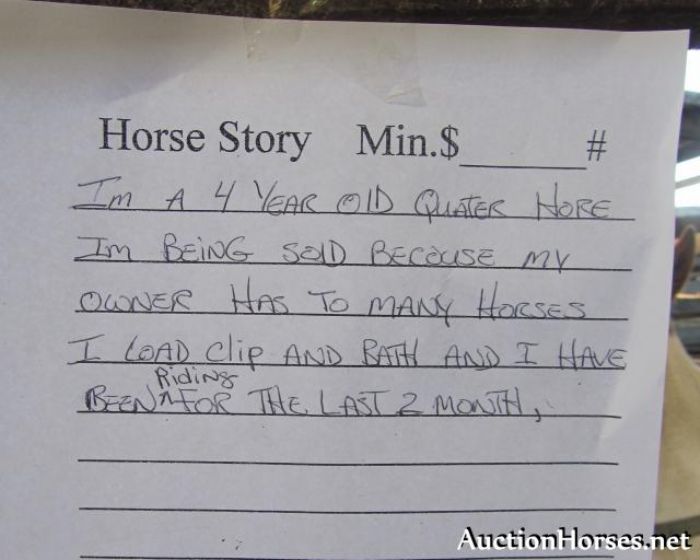 Horse Story Min.$______#
Im A 4 YEAR OlD QUATER HORE
Im BEiNG SOlD BECOUSE MY
OWNER HAS TO MANY HORSES
I LOAD Clip AND BATH AND I HAVE
Riding
BEEN ^ FOR THE LAST 2 MONTH,
AuctionHorses.net